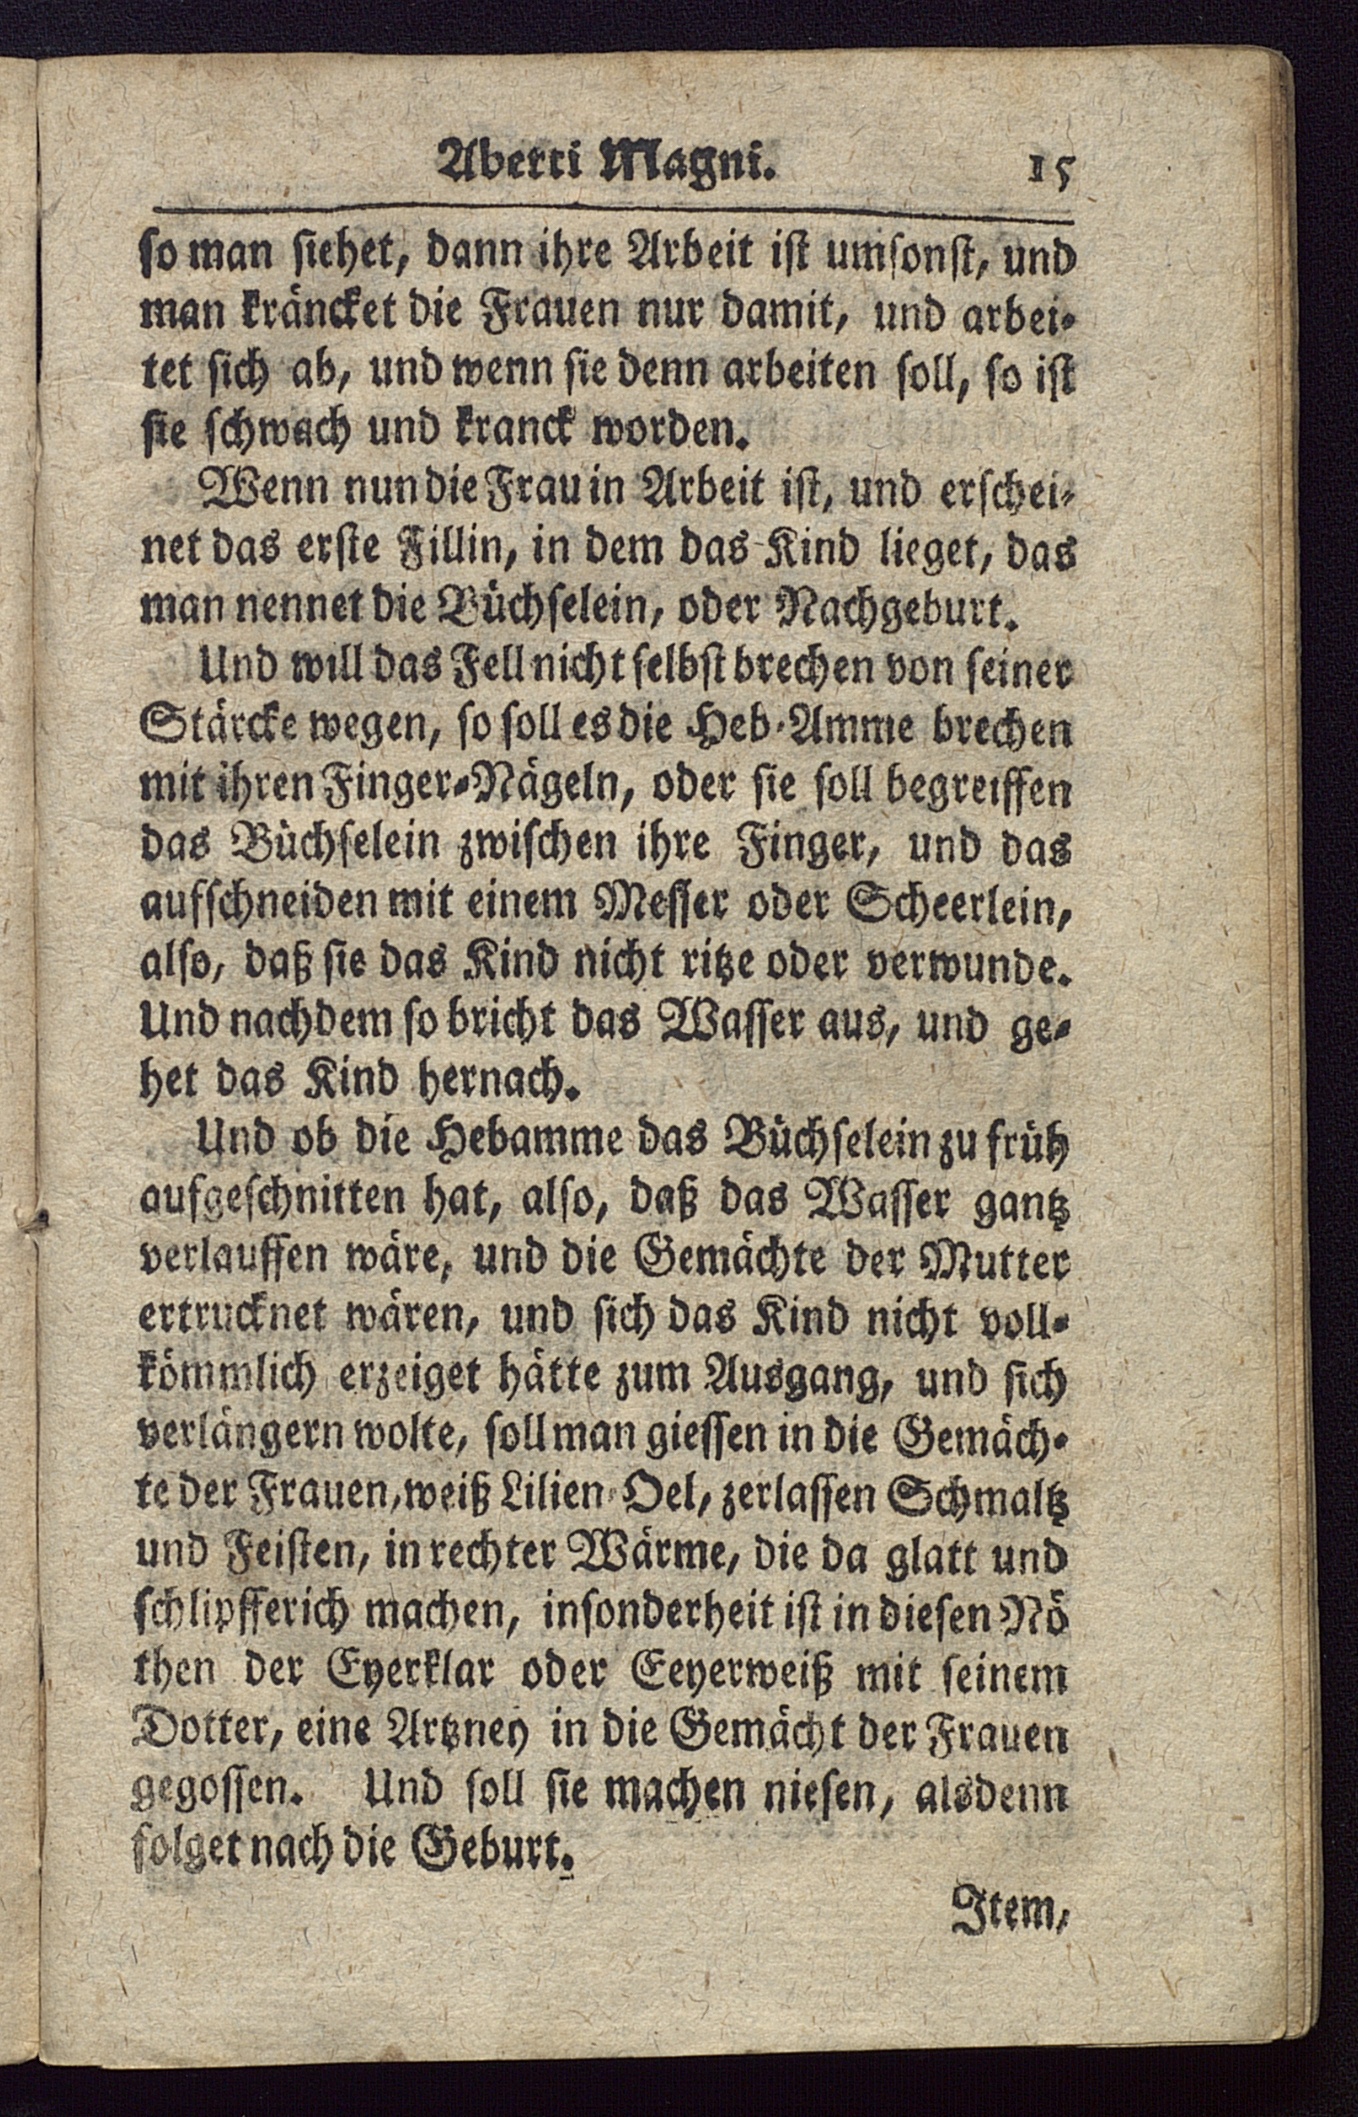 Aberti Magni. 15
so man siehet, dann ihre Arbeit ist umsonst, und
man kräncket die Frauen nur damit, und arbei-
tet sich ab, und wenn sie denn arbeiten soll, so ist
sie schwach und kranck worden.
Wenn nun die Frau in Arbeit ist, und erschei-
net das erste Fillin, in dem das Kind lieget, das
man nennet die Büchselein, oder Nachgeburt.
Und will das Fell nicht selbst brechen von seiner
Stärcke wegen, so soll es die Heb-Amme brechen
mit ihren Finger-Nägeln, oder sie soll begreiffen
das Büchselein zwischen ihre Finger, und das
aufschneiden mit einem Messer oder Scheerlein,
also, daß sie das Kind nicht ritze oder verwunde.
Und nachdem so bricht das Wasser aus, und ge-
het das Kind hernach.
Und ob die Hebamme das Büchselein zu früh
aufgeschnitten hat, also, daß das Wasser gantz
verlauffen wäre, und die Gemächte der Mutter
ertrucknet wären, und sich das Kind nicht voll-
kömmlich erzeiget hätte zum Ausgang, und sich
verlängern wolte, soll man giessen in die Gemäch-
te der Frauen, weiß Lilien-Oel, zerlassen Schmaltz
und Feisten, in rechter Wärme, die da glatt und
schlipfferich machen, insonderheit ist in diesen Nö
then der Eyerklar oder Eeyerweiß mit seinem
Dotter, eine Artzney in die Gemächt der Frauen
gegossen. Und soll sie machen niesen, alsdenn
folget nach die Geburt.
Item,